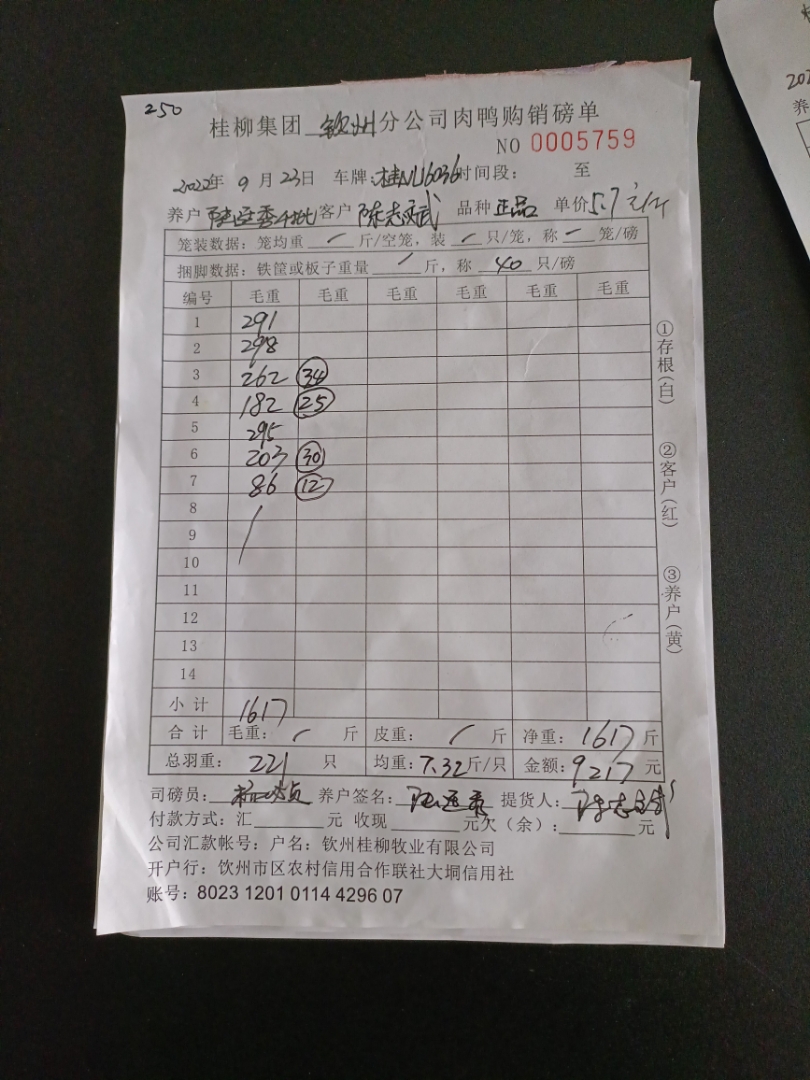 250
桂柳集团 钦州 分公司肉鸭购销磅单
NO 0005759
2022年 9 月 23日 车牌:桂NU6036时间段: 至
养户 客户 陈志武 品种 正品 单价5.7元/斤
笼装数据:笼均重 / 斤/空笼,装 / 只/笼,称 / 笼/磅
捆脚数据:铁筐或板子重量 / 斤,称 40 只/磅
编号 毛重 毛重 毛重 毛重 毛重 毛重
1 291
2 298
3 262 34
4 182 25
5 295
6 203 30
7 86 12
8
9
10
11
12
13
14
小计 1617
合计 毛重: / 斤 皮重: / 斤 净重: 1617 斤
总羽重: 221 只 均重:7.32斤/只 金额:9217 元
①存根(白)
②客户(红)
③养户(黄)
司磅员: 养户签名: 提货人:陈志武
付款方式:汇 元 收现 元欠(余): 元
公司汇款帐号:户名:钦州桂柳牧业有限公司
开户行:饮州市区农村信用合作联社大垌信用社
账号:8023 1201 0114 4296 07
202
养